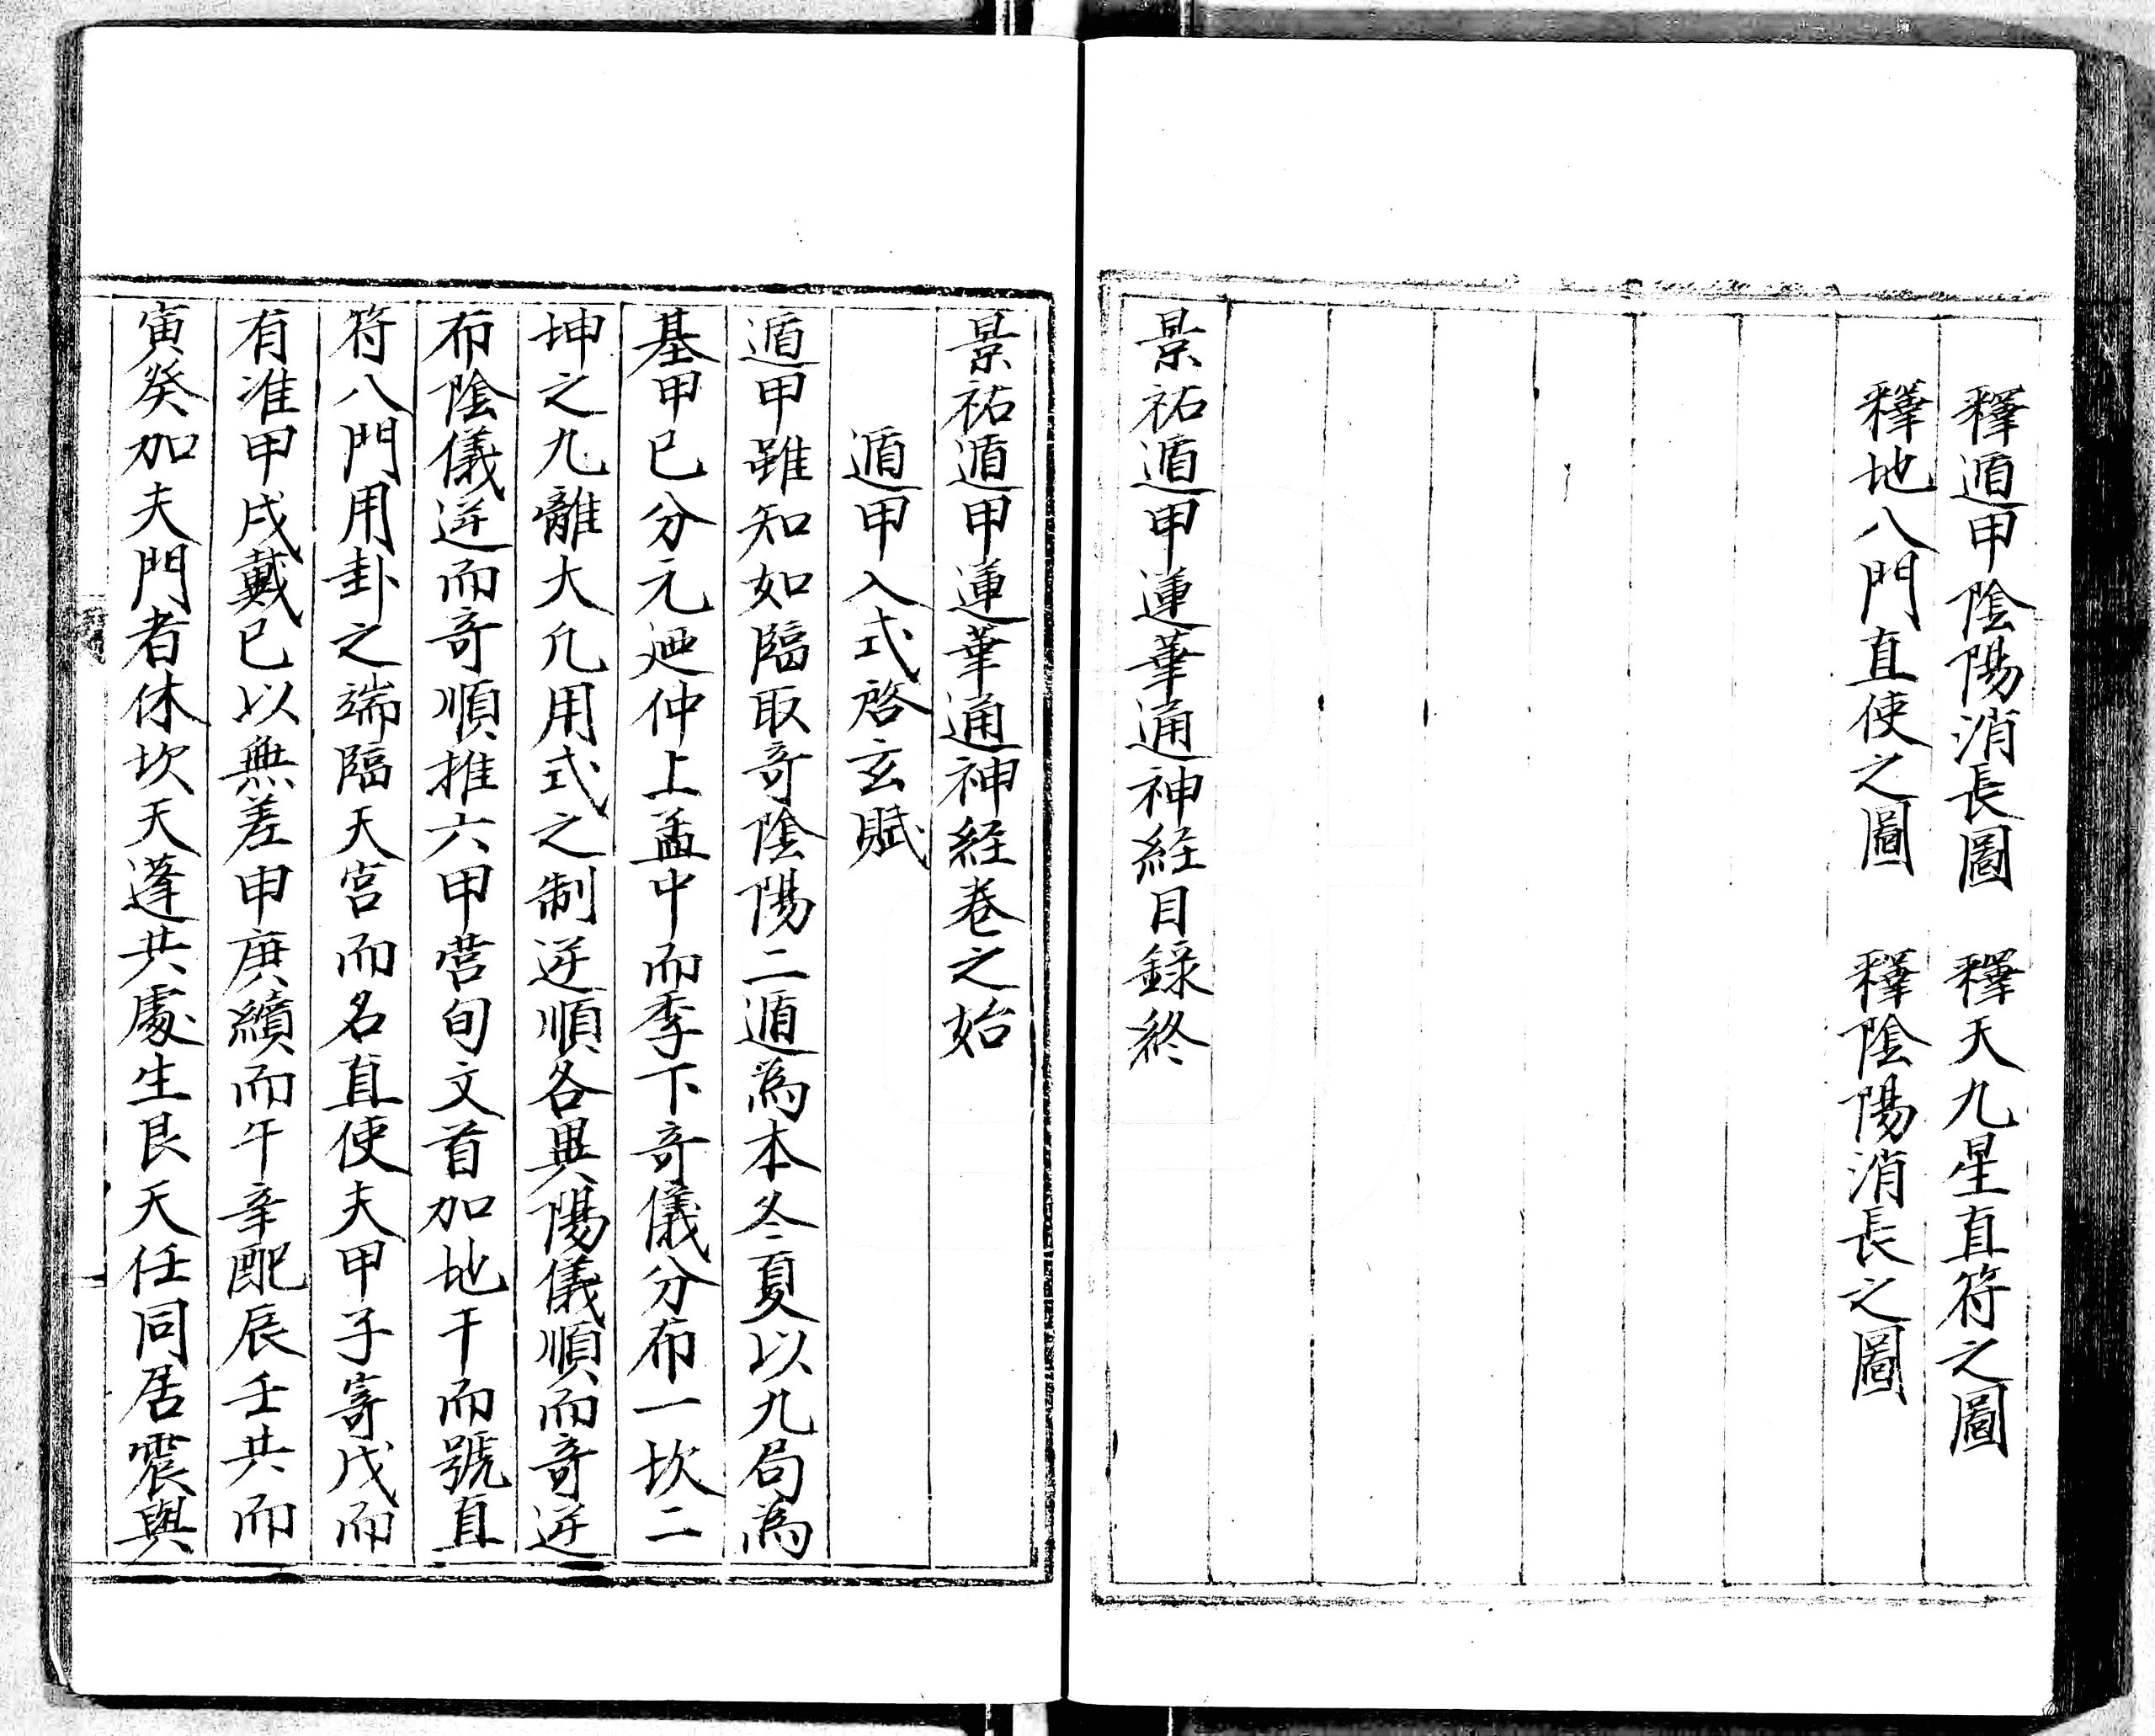 釋遁甲陰陽消長圖　釋天九星直符之圖
釋地八門直使之圖　釋陰陽消長之圖
景祐遁甲蓮華通神経目錄終
景祐遁甲蓮華通神経卷之始
遁甲入式啓玄賦
遁甲雖知如臨取竒陰陽二遁為本冬夏以九局為
基甲已分元廵仲上孟中而季下竒儀分布一坎二
坤之九離大凢用式之制逆順各異陽儀順而竒逆
布陰儀逆而竒順推六甲营旬文首加地干而號直
符八門用卦之端臨天宫而名直使夫甲子寄戊而
有准甲戌戴已以無差申庚續而午辛配辰壬共而
寅癸加夫門者休坎天蓬共處生艮天任同居震與